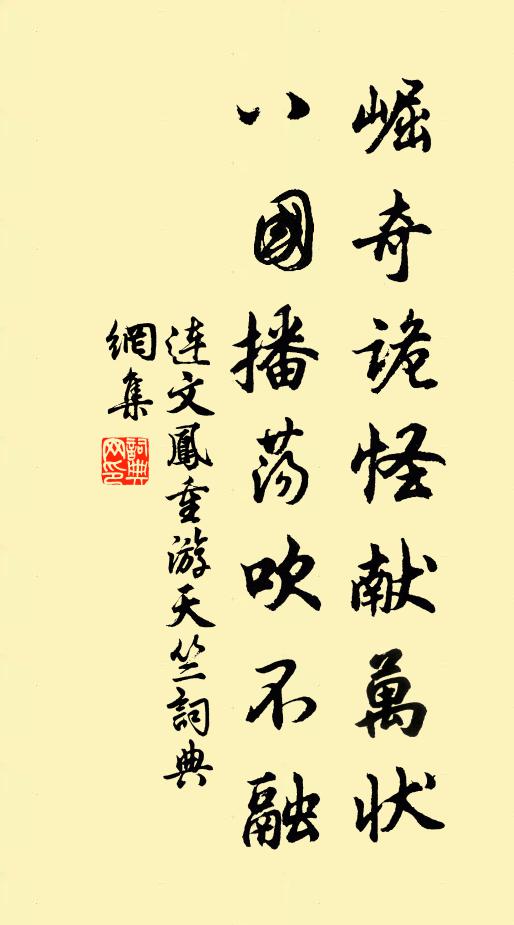 崛奇詭怪献萬状
八國播荡吹不融
連文鳳重游天竺詞典
網集
詞典
网印